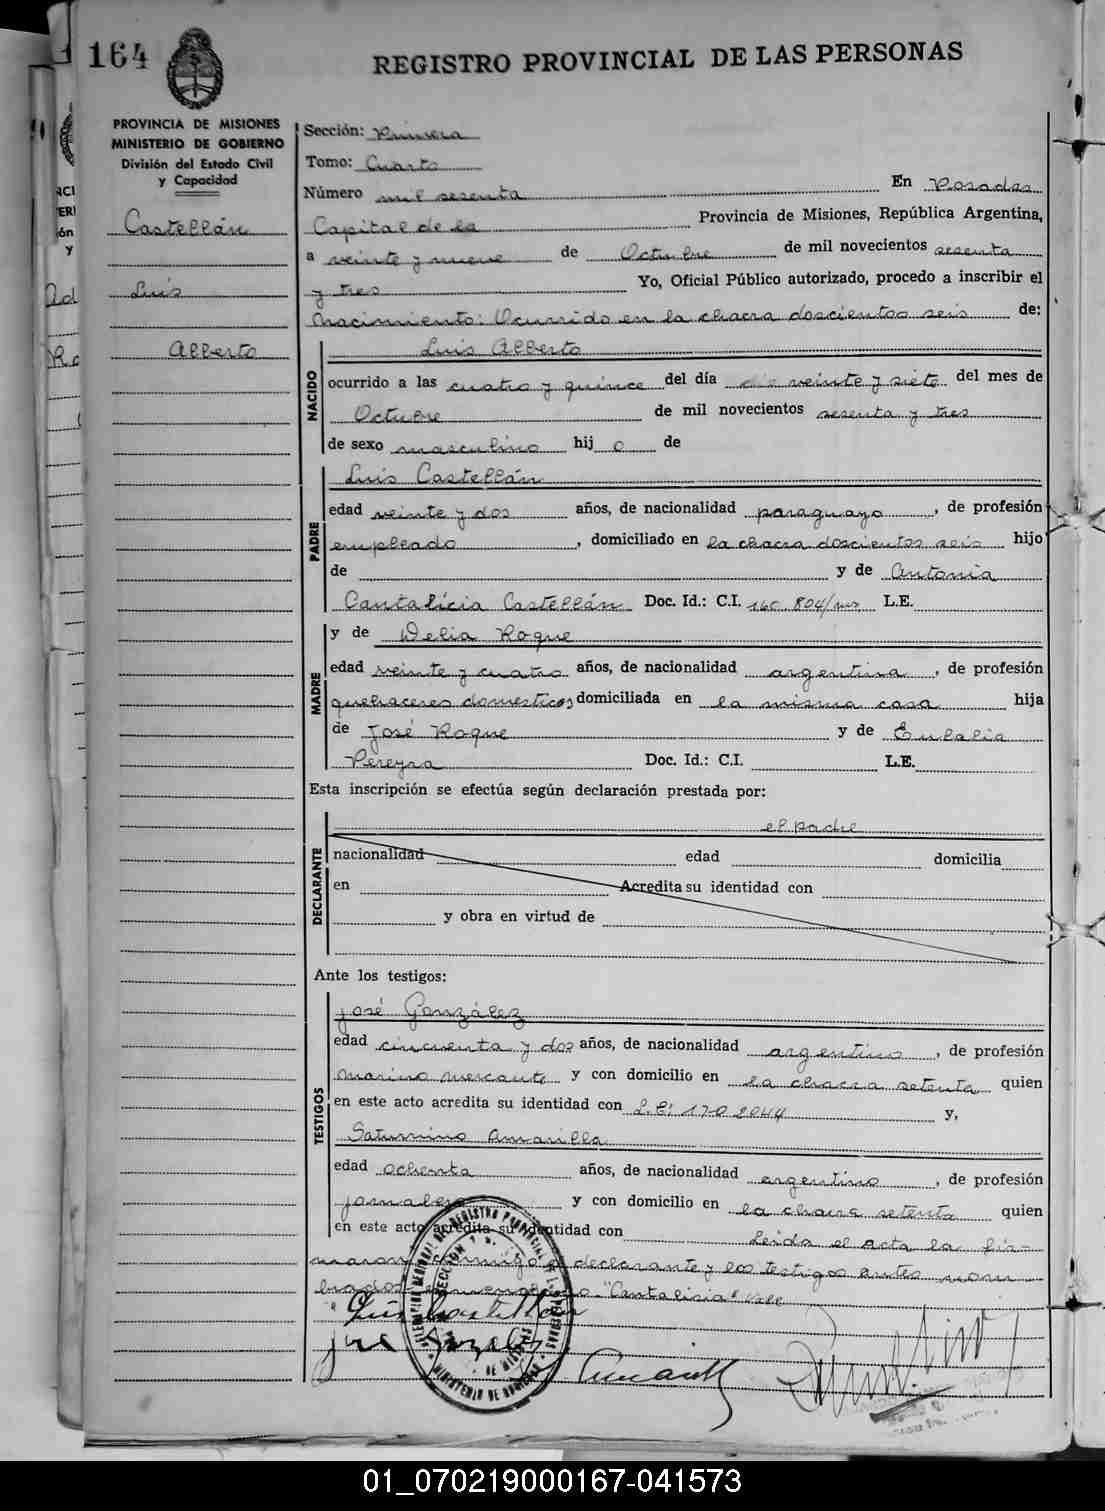 164
REGISTRO PROVINCIAL DE LAS PERSONAS
PROVINCIA DE MISIONES
MINISTERIO DE GOBIERNO
División del Estado Civil
y Capacidad
Castellán
Luis
Alberto
Sección: Primera
Tomo: Cuarto
Número mil sesenta En Posadas
Capital de la Provincia de Misiones, República Argentina,
a veinte y nueve de Octubre de mil novecientos sesenta
y tres Yo, Oficial Público autorizado, procedo a inscribir el
Nacimiento: Ocurrido en la chacra doscientos seis de:
NACIDO
Luis Alberto
ocurrido a las cuatro y quince del día día veinte y siete del mes de
Octubre de mil novecientos sesenta y tres
de sexo masculino hij o de
PADRE
Luis Castellán
edad veinte y dos años, de nacionalidad paraguayo, de profesión
empleado, domiciliado en la chacra doscientos seis hijo
de y de Antonia
Cantalicia Castellán Doc. Id.: C.I. 160.804/ L.E.
MADRE
y de Delia Roque
edad veinte y cuatro años, de nacionalidad argentina, de profesión
quehaceres domesticos domiciliada en la misma casa hija
de José Roque y de Eulalia
Pereyra Doc. Id.: C.I. L.E.
Esta inscripción se efectúa según declaración prestada por:
DECLARANTE
el padre
nacionalidad edad domicilia
en Acredita su identidad con
y obra en virtud de
Ante los testigos:
TESTIGOS
José González
edad cincuenta y dos años, de nacionalidad argentino, de profesión
marino mercante y con domicilio en la chacra setenta quien
en este acto acredita su identidad con L.E: 1702044 y,
Saturnino Amarilla
edad ochenta años, de nacionalidad argentino, de profesión
jornalero y con domicilio en la chacra setenta quien
en este acto acredita su identidad con Leida el acta la fir-
maron conmigo el declarante y los testigos antes nom
brados "Cantalicia" Vale
Luis Castellan
José González
Amarilla
01_070219000167-041573